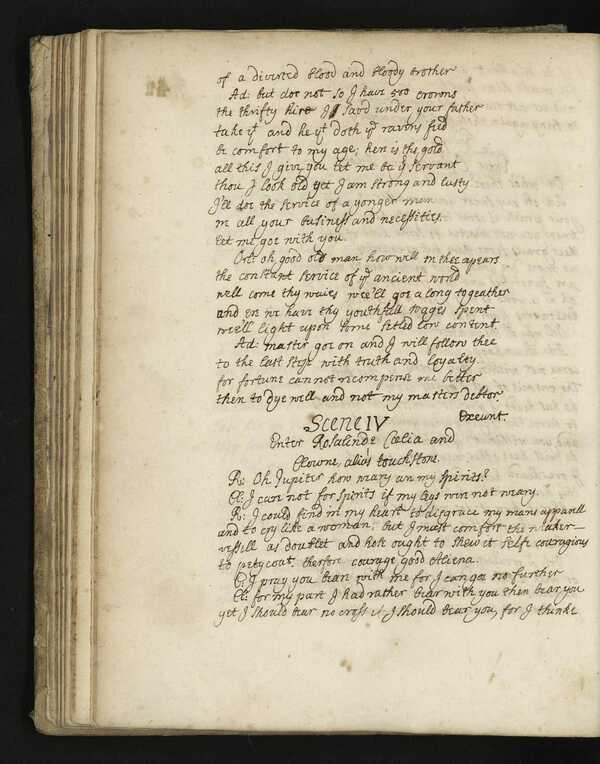 of a diverted blood and bloody brother
Ad: but doe not so I have 500 crorons
the thrifty hire I sav'd under your father
take yt and he yt doth ye ravens feed
be comfort to my age; here is the gold
all this I give you let me be yr servant
thou I look old yet I am strong and lusty
I'le doe the service of a yonger man
in all your business and necessities.
let me goe with you.
Orl: oh good old man how well in thee apears
the constant service of ye ancient world
well come thy waies wee'll goe along togeather
and er we have thy youthfull wages spent
wee'll light upon some setled low content.
Ad: master goe on and I will follow thee
to the last step with truth and loyalty
for fortune cannot recompense me better
then to dye well and not my masters debtor.
Exeunt.
Scene IV
Enter Rosalinde Cœlia and
Clowne, alias touchstone.
R: Oh Jupiter how weary are my spirits?
Cl: I care not for spirits if my legs were not weary.
R: I could find in my heart to disgrace my mans apparell
and to cry like a woman; but I must comfort the weaker
vessell as doublet and hose ought to shew it selfe couragious
to petycoat, therfore courage good Aliena.
C: I pray you bear with me for I can goe no further
Cl: for my part I had rather bear with you then bear you
yet I should bear no cross if I should bear you, for I thinke